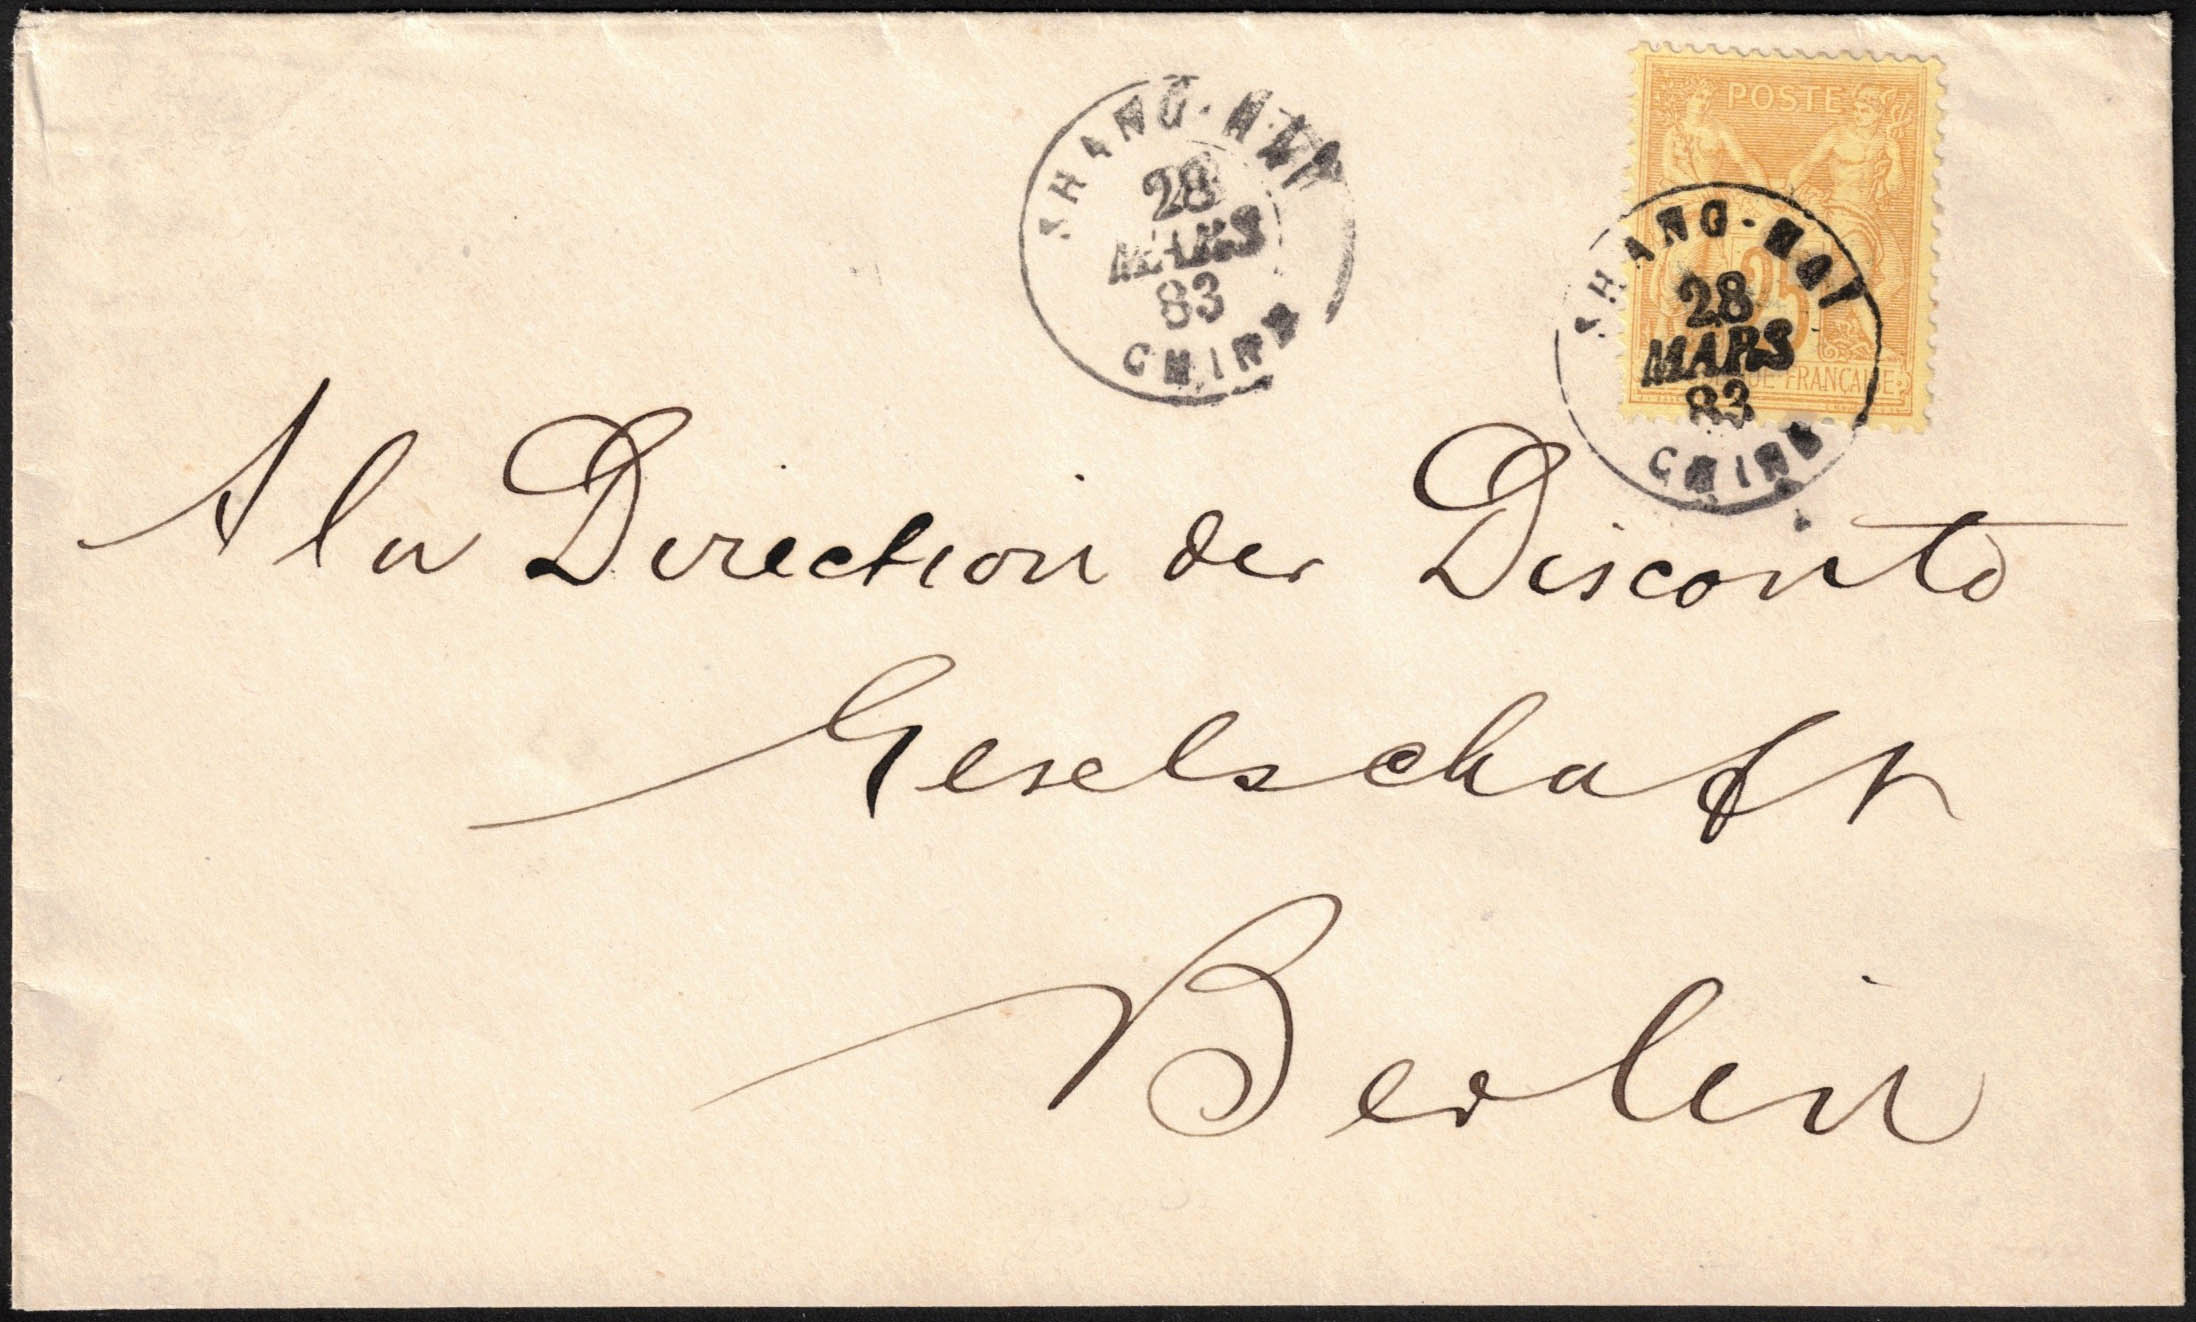 SHANG-HAI
28
MARS
83
CHINE
POSTE
25
QUE FRANCAISE
SHANG-HAI
28
MARS
83
CHINE
A la Direction der Disconto
Geselschaft
Berlin